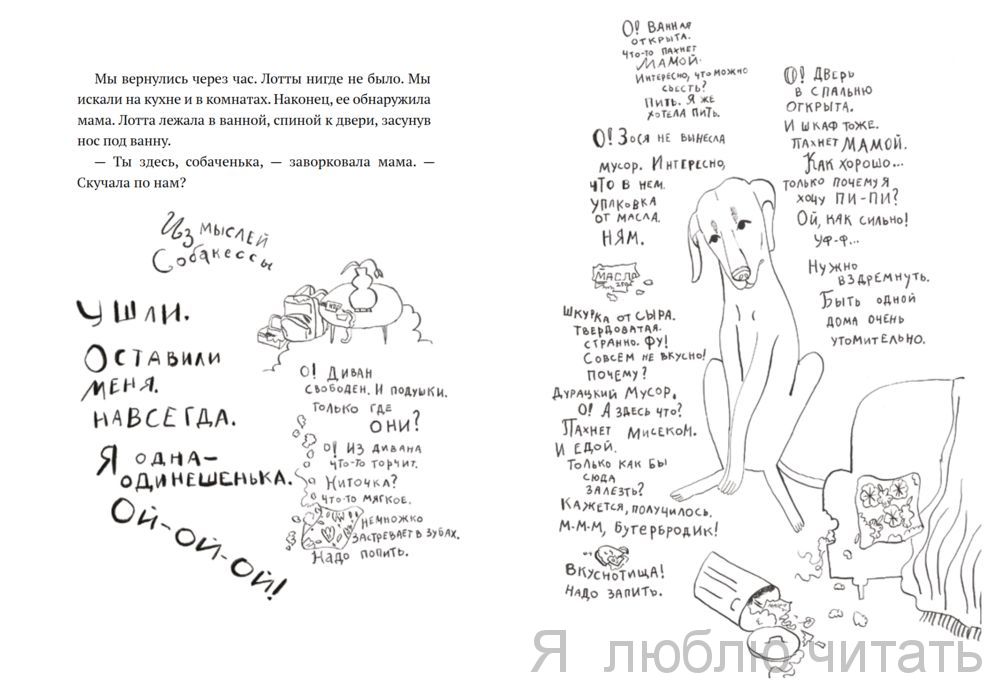 Мы вернулись через час. Лотты нигде не было. Мы
искали на кухне и в комнатах. Наконец, ее обнаружила
мама. Лотта лежала в ванной, спиной к двери, засунув
нос под ванну.
— Ты здесь, собаченька, — заворковала мама. —
Скучала по нам?
Из мыслей
Собакессы
Ушли.
Оставили
меня.
Навсегда.
Я одна-
одинешенька.
Ой-ой-ой!
О! Диван
свободен. И подушки.
Только где
они?
О! Из дивана
что-то торчит.
Ниточка?
Что-то мягкое.
Немножко
застревает в зубах.
Надо попить.
О! Ванная
открыта.
Что-то пахнет
мамой.
Интересно, что можно
съесть?
Пить. Я же
хотела пить.
О! Зося не вынесла
мусор. Интересно,
что в нем.
Упаковка
от масла.
Ням.
Масло
Шкурка от сыра.
Твердоватая.
Странно. Фу!
Совсем не вкусно!
Почему?
Дурацкий мусор.
О! А здесь что?
Пахнет Мисеком.
И едой.
Только как бы
сюда
залезть?
Кажется, получилось.
М-м-м, бутербродик!
Вкуснотища!
Надо запить.
О! Дверь
в спальню
открыта.
И шкаф тоже.
Пахнет мамой.
Как хорошо...
Только почему я
хочу пи-пи?
Ой, как сильно!
Уф-ф...
Нужно
вздремнуть.
Быть одной
дома очень
утомительно.
Я люблю читать